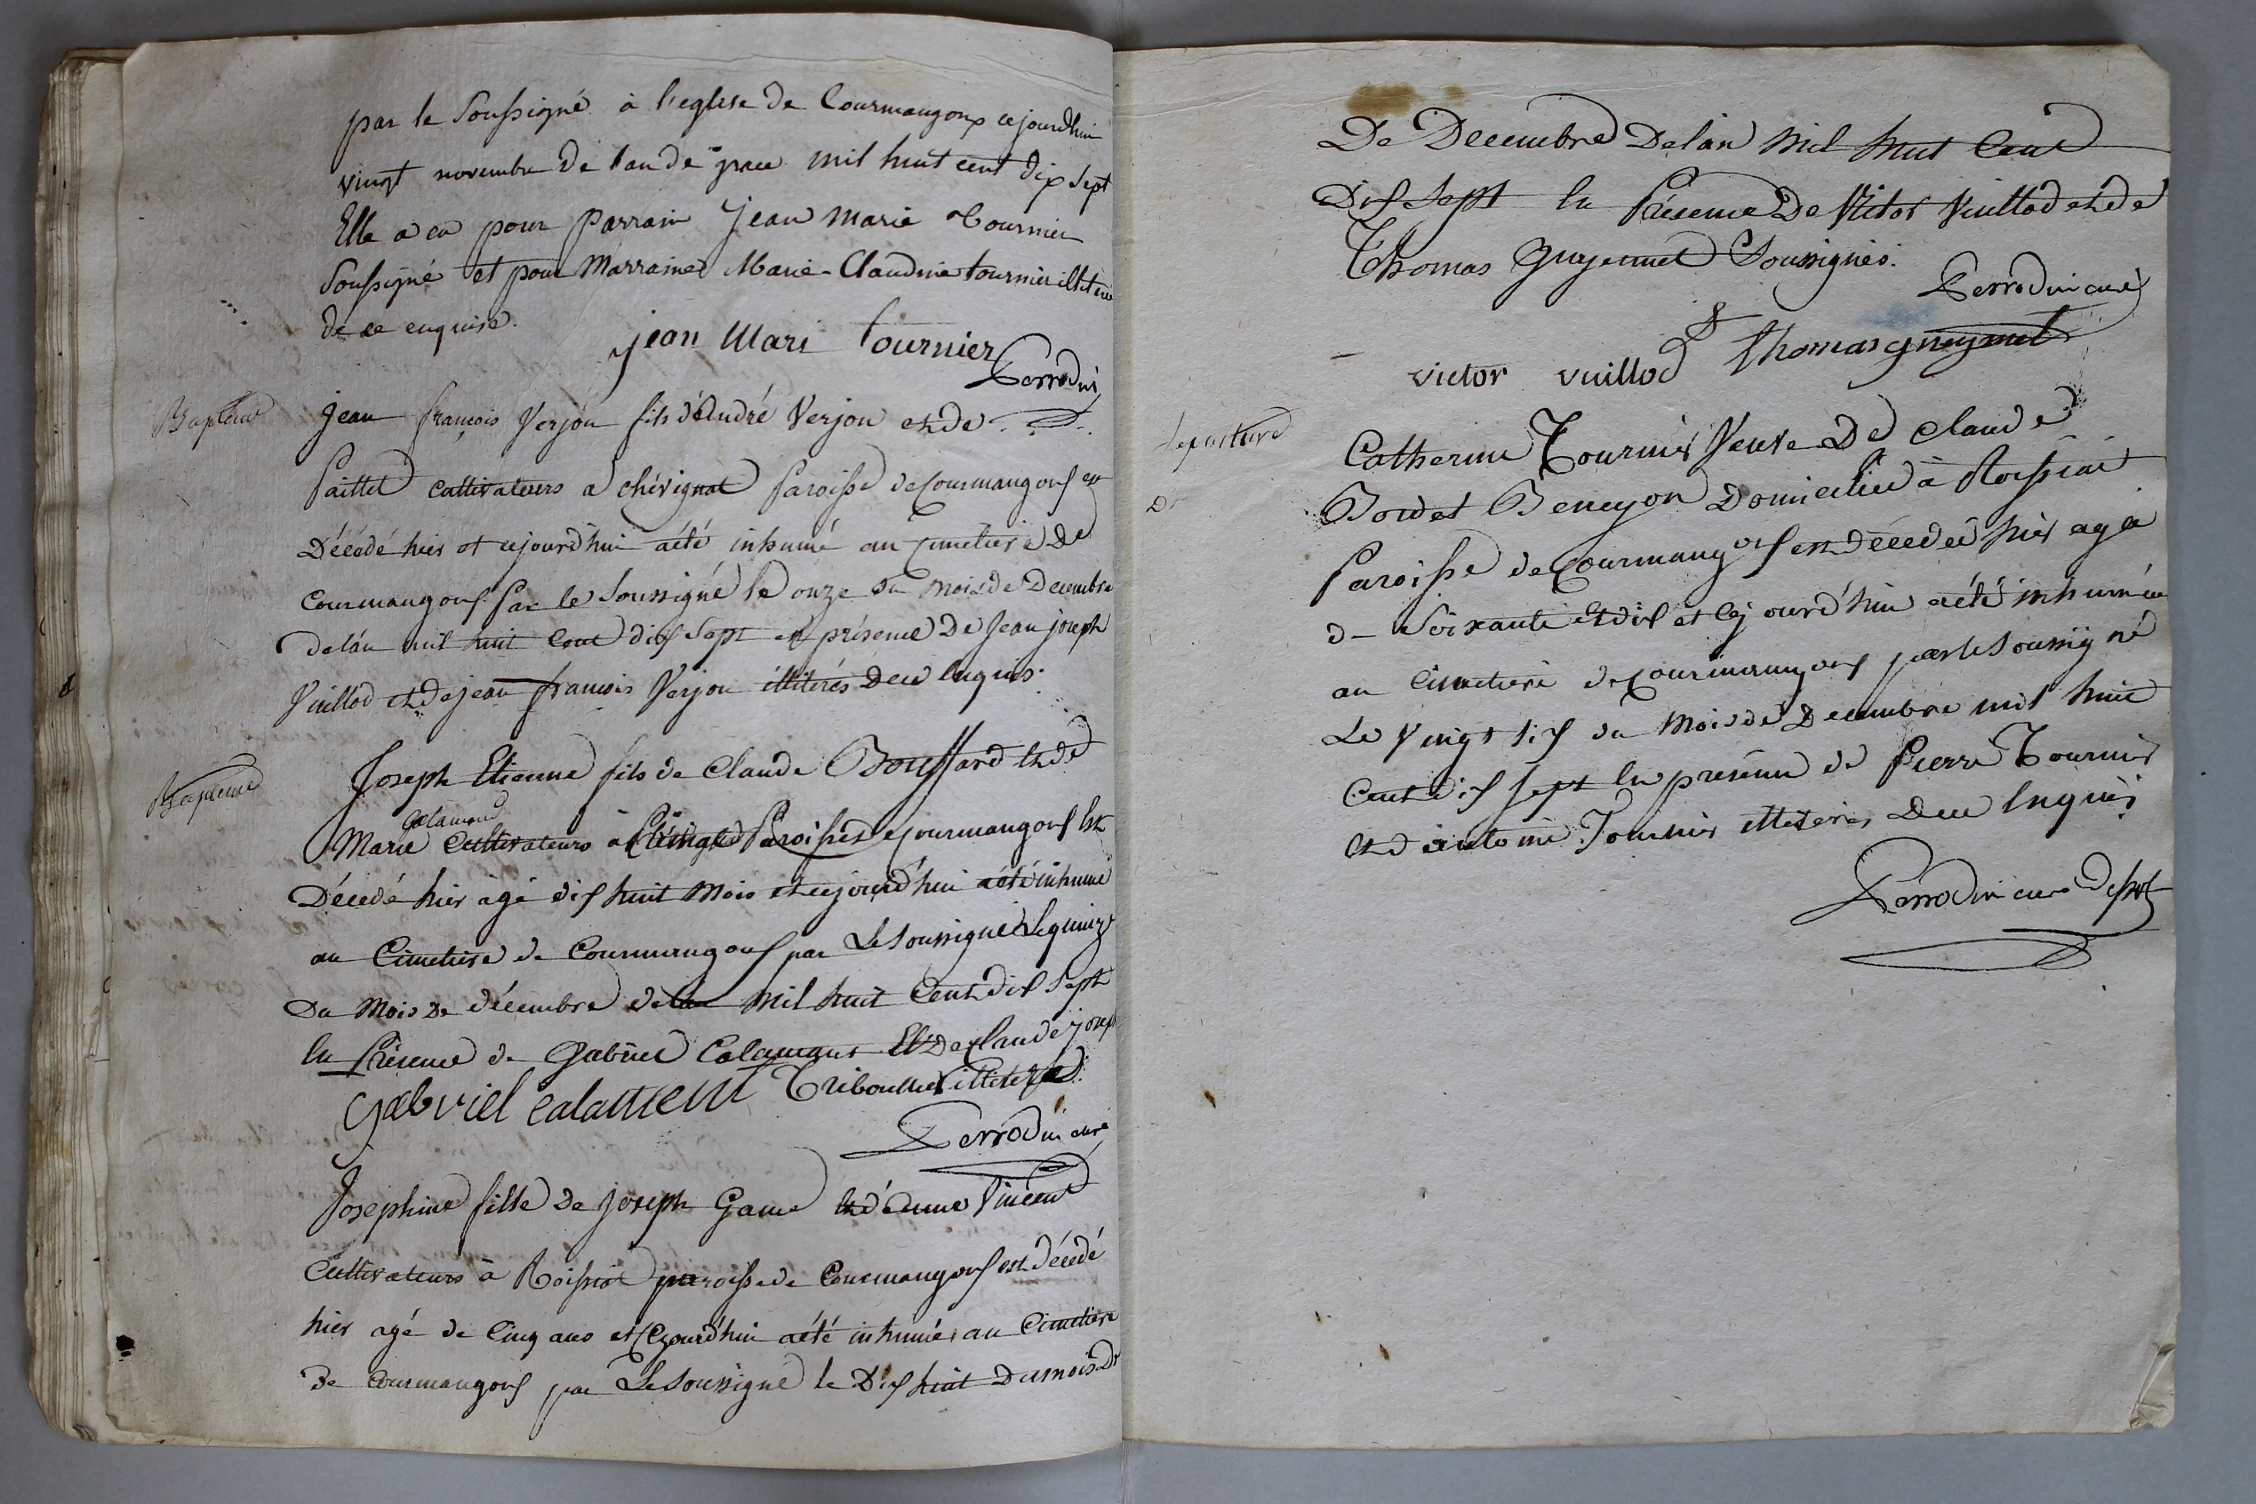 par le soussigné à l'eglise de Courmangoux cejourdhui
vingt novembre de l'an de grace mil huit cent dix sept
Elle a eu pour parrain Jean marie Tournier
soussigné et pour Marraine Marie-Claudine tournier
de ce enquise.
jean Mari tournier
Perrodin
Bapteme
Jean françois Verjon fils d'André Verjon et de
Paillet cultivateurs a chévignat Paroisse de Courmangoux est
Décédé hier et cejourd'hui a été inhumé au cimetiere De
Courmangoux par le soussigné le onze du mois de Decembre
de l'an mil huit cent dix sept en présence De Jean joseph
Vuillod et de jean françois Verjon illiterés De ce enquis.
Bapteme
Joseph Etienne fils de Claude Bouffard et de
Calamand
Marie Cultivateurs à Paroisse de Courmangoux Est
Décédé hier agé dix huit mois et cejourd'hui a été inhumé
au Cimetiere de Courmangoux par Le soussigné Le quinze
Du Mois De décembre de l'an mil huit Cent dix sept
En Présence de Gabriel Calamans Et De Claude joseph
Gabriel calamem Triboullet
Perrodin curé
Josephine fille de joseph Game et d'Anne Vincent
Cultivateurs à Roissiat paroisse de Courmangoux est décédé
hier agé de Cinq ans et Cejourd'hui a été inhumée au Cimetiere
de Courmangoux par Le soussigné le Dix huit Du mois De
De Decembre De l'an Mil huit Cent
Dix sept En Présence De Victor Vuillod et de
Thomas Guyennet Soussignés.
Perrodin curé
victor vuillod thomas gueynnet
sepulture
De
Catherine Tournier Veuve De Claude
Boudet Beneyon Domiciliée à Roissiat
Paroisse de Courmangoux est décédée hier agée
de Soixante et dix et Cejourd'hui a été inhumée
au Cimetiere de Courmangoux par le soussigné
Le Vingt six du Mois de Decembre mil huit
Cent dix sept En présence de Pierre Tournier
Et d'antoine Tournier illiterés De ce Enquis
Perrodin curé desst